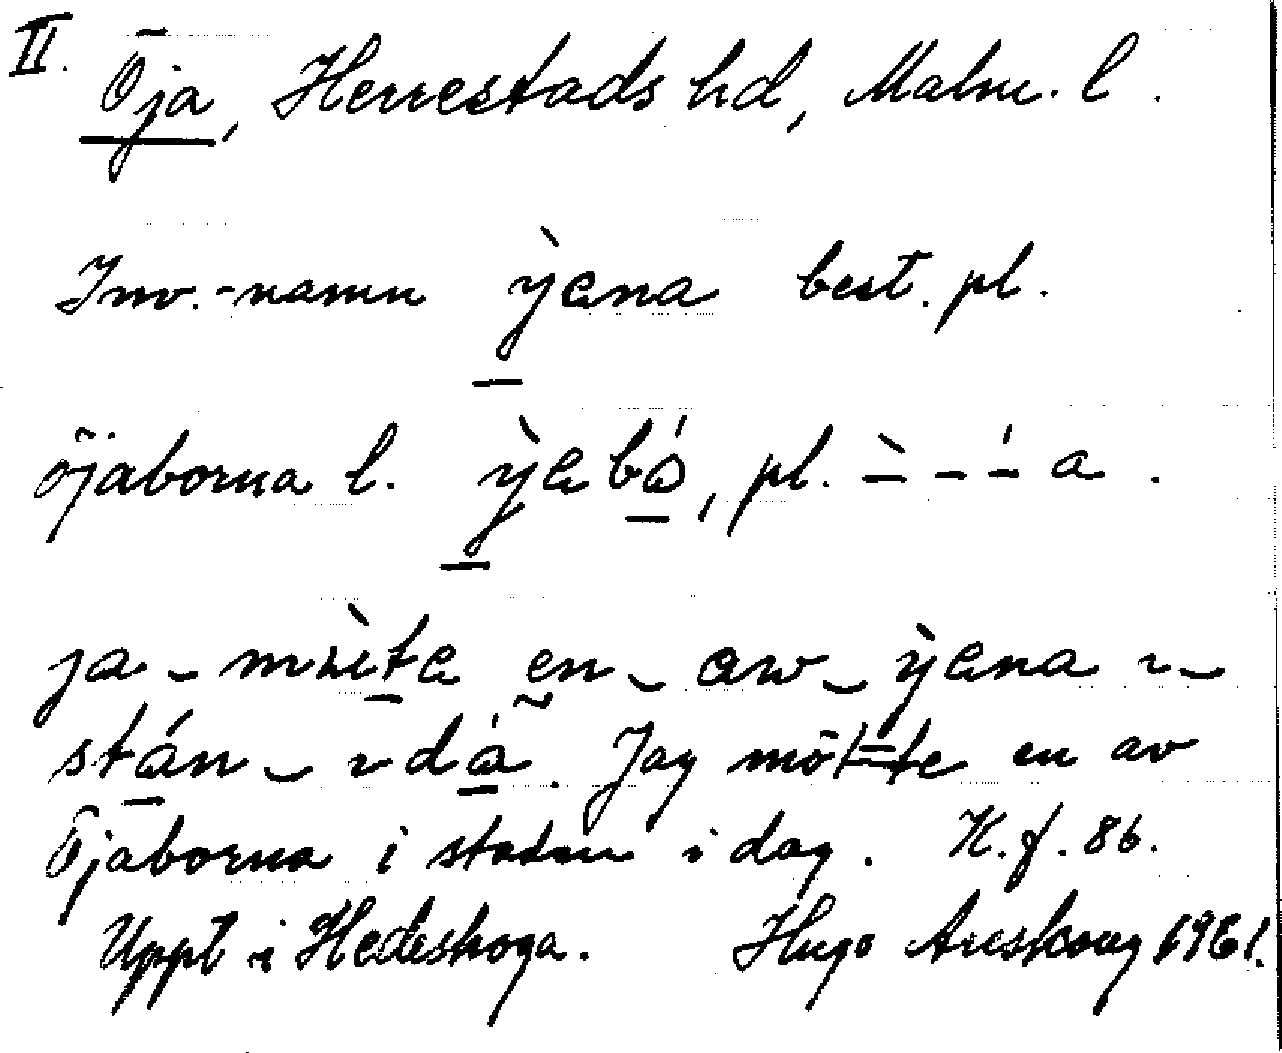 II. Öja, Herrestads hd, Malm. l.
Inv.-namn ỳena best. pl.
öjaborna l. ỳebó, pl. -̀ - -́ a.
ja - mỳete en - aw - ỳena i -
stán - idá. Jag mötte en av
Öjaborna i staden i dag. K. f. 86.
Uppt i Hedeskoga. Hugo Areskoug 1961.